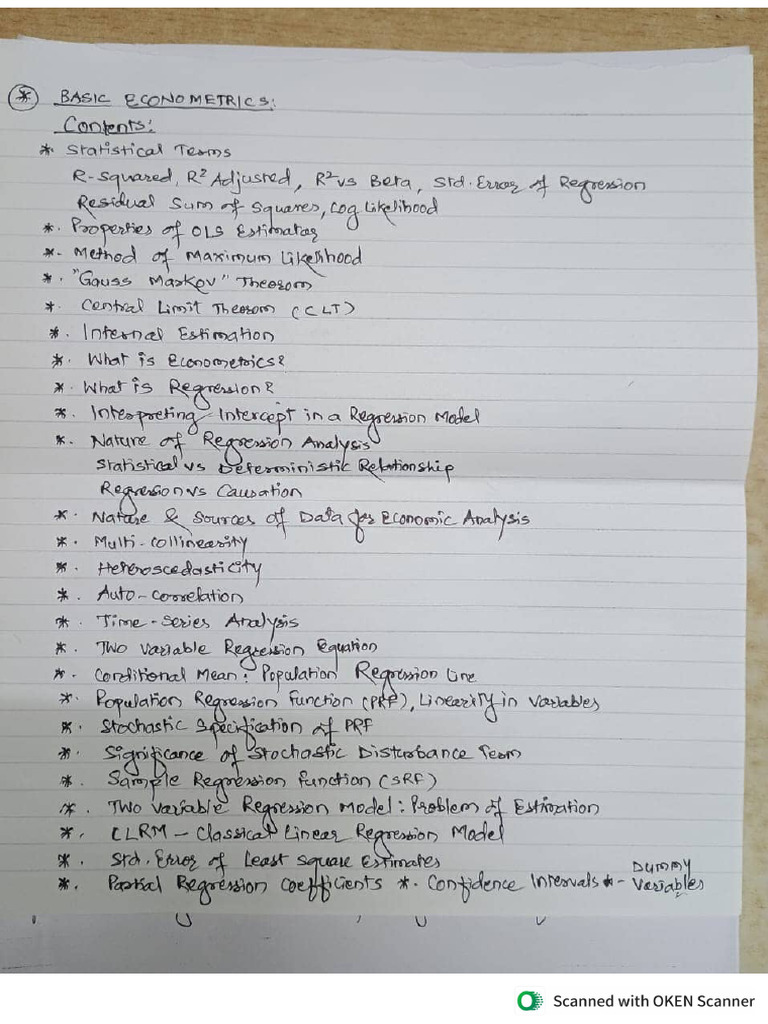 * BASIC ECONOMETRICS:
Contents:
* Statistical Terms
R-Squared, R² Adjusted, R² vs Beta, Std. Error of Regression
Residual Sum of Squares, Log Likelihood
*. Properties of OLS Estimates
*- Method of Maximum Likelihood
*. "Gauss Markov" Theorem
*. Central Limit Theorem (CLT)
*. Internal Estimation
*. What is Econometrics?
*. What is Regression?
*. Interpreting Intercept in a Regression Model
*. Nature of Regression Analysis
Statistical vs Deterministic Relationship
Regression vs Causation
*. Nature & Sources of Data for Economic Analysis
*. Multi-collinearity
*. Heteroscedasticity
*. Auto-correlation
*. Time-Series Analysis
*. Two Variable Regression Equation
*. Conditional Mean: Population Regression Line
*. Population Regression Function (PRF), Linearity in Variables
*. Stochastic Specification of PRF
*. Significance of Stochastic Disturbance Term
*. Sample Regression Function (SRF)
*. Two Variable Regression Model: Problem of Estimation
*. CLRM - Classical Linear Regression Model
*. Std. Error of Least Square Estimates
*. Partial Regression Coefficients *. Confidence Intervals *- Dummy Variables
Scanned with OKEN Scanner